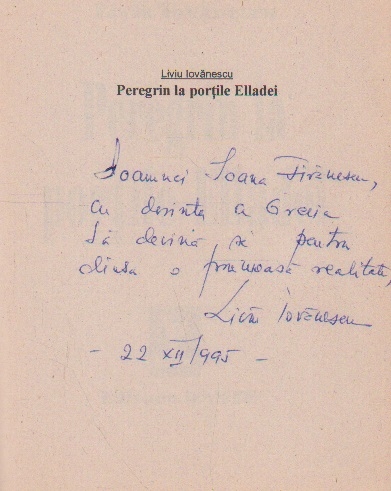 Liviu Iovănescu
Peregrin la porțile Elladei
Doamnei Ioana Firănescu,
cu dorința ca Grecia
să devină și pentru
dînsa o frumoasă realitate,
Liviu Iovănescu
- 22 XII 1995 -